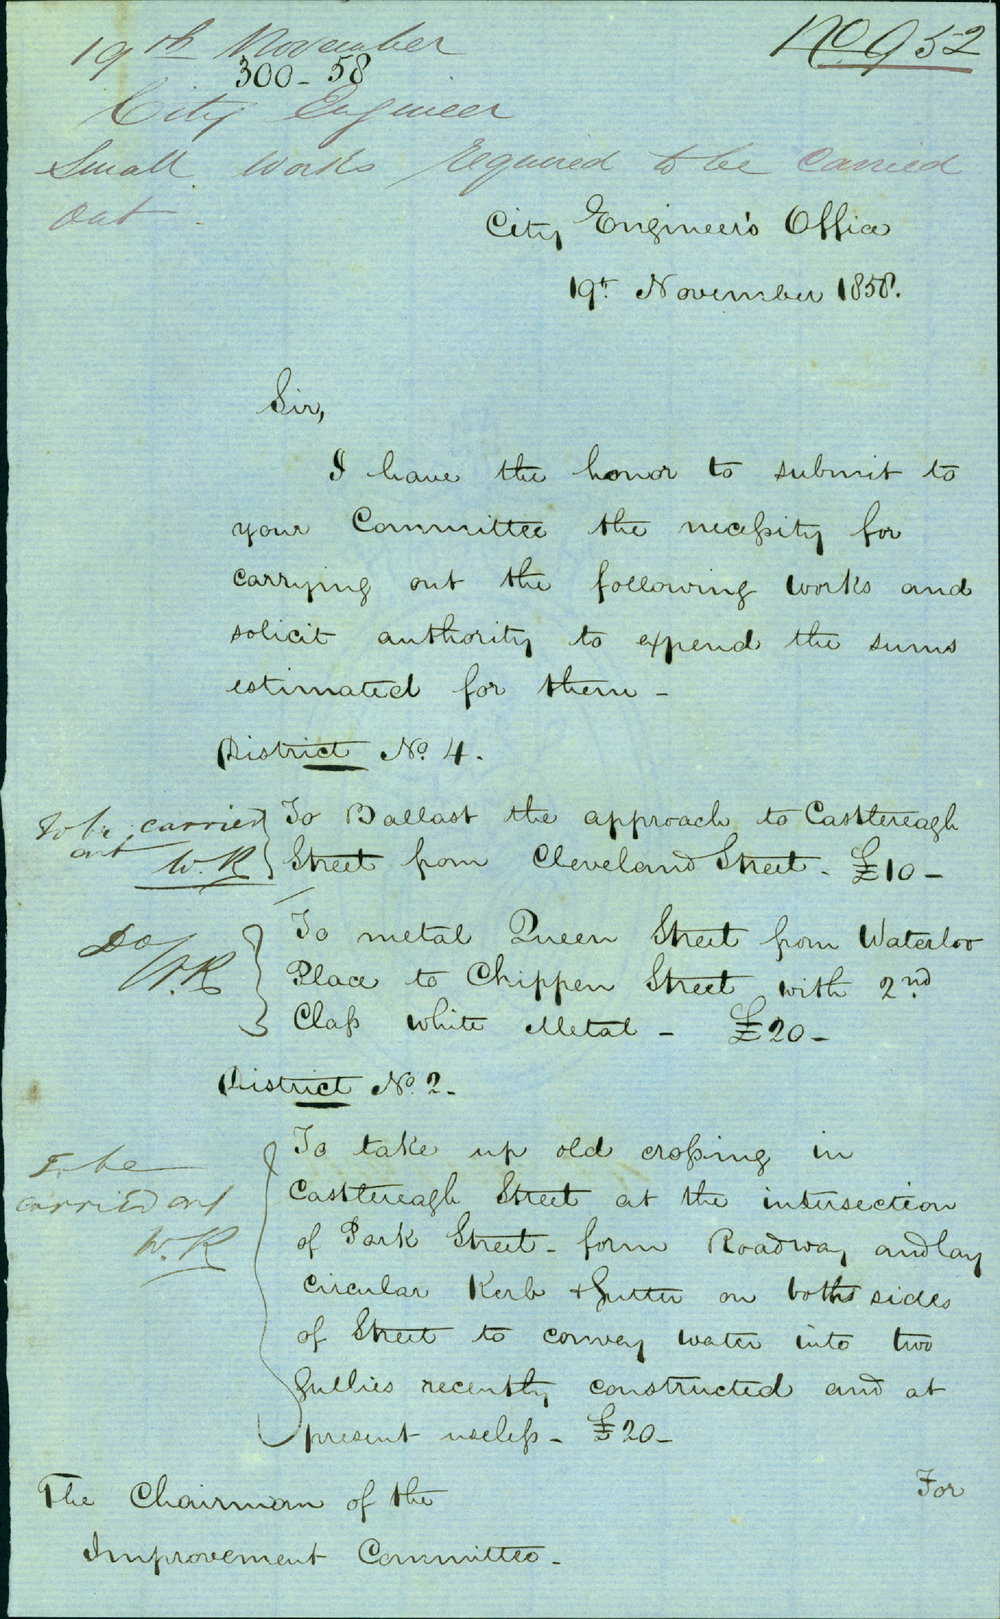 No. 952
19th November
300-58
City Engineer
Small Works required to be carried
out -
City Engineer's Office
19th November 1858.
Sir,
I have the honor to submit to
your Committee the necessity for
carrying out the following works and
solicit authority to expend the sums
estimated for them -
District No. 4.
To be carried
out
W.R
To Ballast the approach to Castlereagh
Street from Cleveland Street - £10 -
Do
W.R
To metal Queen Street from Waterloo
Place to Chippen Street with 2nd
Class white Metal - £20 -
District No. 2 -
To be
carried out
W.R
To take up old crossing in
Castlereagh Street at the intersection
of Park Street - form Roadway and lay
Circular Kerb & Gutter on both sides
of Street to convey water into two
Gullies recently constructed and at
present useless - £20 -
The Chairman of the
Improvement Committee -
For